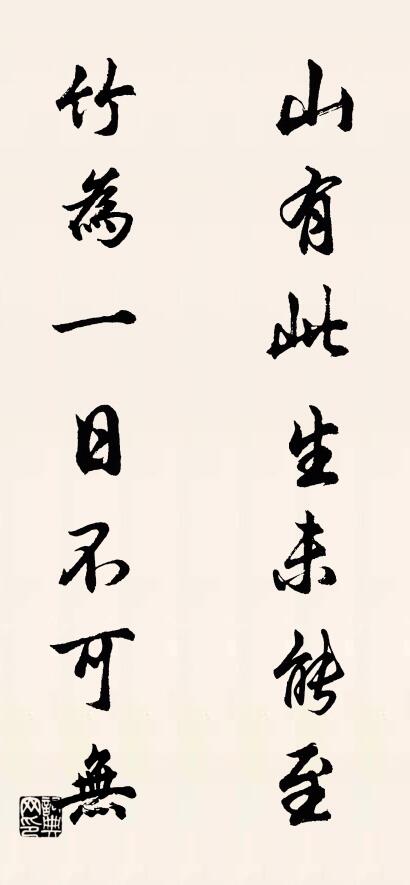 山有此生未能至
竹為一日不可無